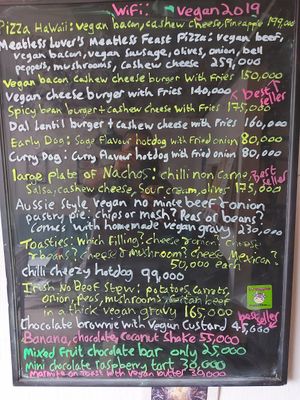 WiFi: vegan2019
Pizza Hawaii: vegan bacon, cashew cheese, Pineapple 199,000
Meatless Lover's Meatless Feast Pizza: vegan beef,
vegan bacon, vegan sausage, olives, onion, bell
peppers, mushrooms, cashew cheese 259,000
Vegan bacon cashew cheese burger with Fries 150,000
Vegan cheese burger with Fries 140,000 best seller
Spicy bean burger + cashew cheese with Fries 175,000
Dal Lentil burger + cashew cheese with Fries 160,000
Early Dog: Sage Flavour hotdog with Fried onion 80,000
Curry Dog: Curry Flavour hotdog with Fried onion 80,000
large plate of Nachos: chilli non carne Best seller
Salsa, cashew cheese, Sour cream, olives 175,000
Aussie Style vegan no mince beef & onion
pastry pie: chips or mash? Peas or beans?
comes with homemade vegan gravy 230,000
Toasties: Which Filling? cheese & onion? cheese
& beans? cheese & mushroom? cheese Mexican?
50,000 each
Chilli cheezy hotdog 99,000
Irish No Beef Stew: potatoes, carrots,
onion, peas, mushrooms, seitan beef
in a thick vegan gravy 165,000
best seller
Chocolate browne with Vegan Custard 45,000
Banana, chocolate, coconut Shake 55,000
Mixed Fruit chocolate bar only 25,000
Mini chocolate raspberry tart 30,000
Marmite on toast with vegan butter 39,000